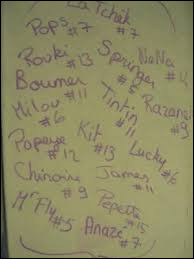 La Tchek
Pops #7 #7
Rouki #13 Springer #5 NaNa #4
Boumer #11
Milou #6 Tintin #11 Razane #9
Popeye #12 Kit #13 Lucky #6
Chinoire #9 James #11
Mr Fly #5 Pepette #15
Anazé #7